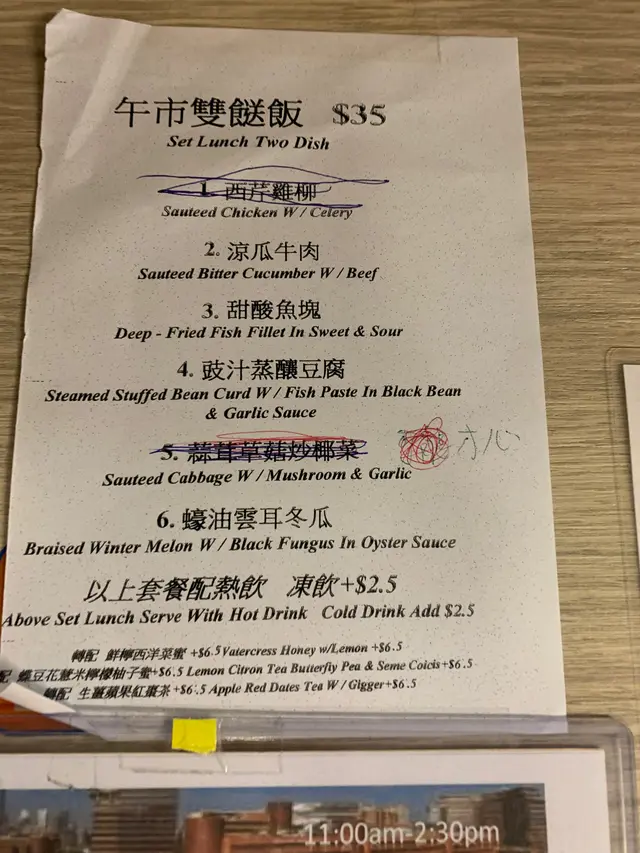 午市雙餸飯 $35
Set Lunch Two Dish
1. 西芹雞柳
Sauteed Chicken W / Celery
2. 涼瓜牛肉
Sauteed Bitter Cucumber W / Beef
3. 甜酸魚塊
Deep - Fried Fish Fillet In Sweet & Sour
4. 豉汁蒸釀豆腐
Steamed Stuffed Bean Curd W / Fish Paste In Black Bean
& Garlic Sauce
5. 蒜茸草菇炒椰菜
Sauteed Cabbage W / Mushroom & Garlic
6. 蠔油雲耳冬瓜
Braised Winter Melon W / Black Fungus In Oyster Sauce
以上套餐配熱飲 凍飲+$2.5
Above Set Lunch Serve With Hot Drink Cold Drink Add $2.5
轉配 鮮檸西洋菜蜜 +$6.5 Vatercress Honey w/Lemon +$6.5
配 蝶豆花薏米檸檬柚子蜜+$6.5 Lemon Citron Tea Butterfly Pea & Seme Coicis+$6.5
轉配 生薑蘋果紅棗茶 +$6.5 Apple Red Dates Tea W / Gigger+$6.5
11:00am-2:30pm